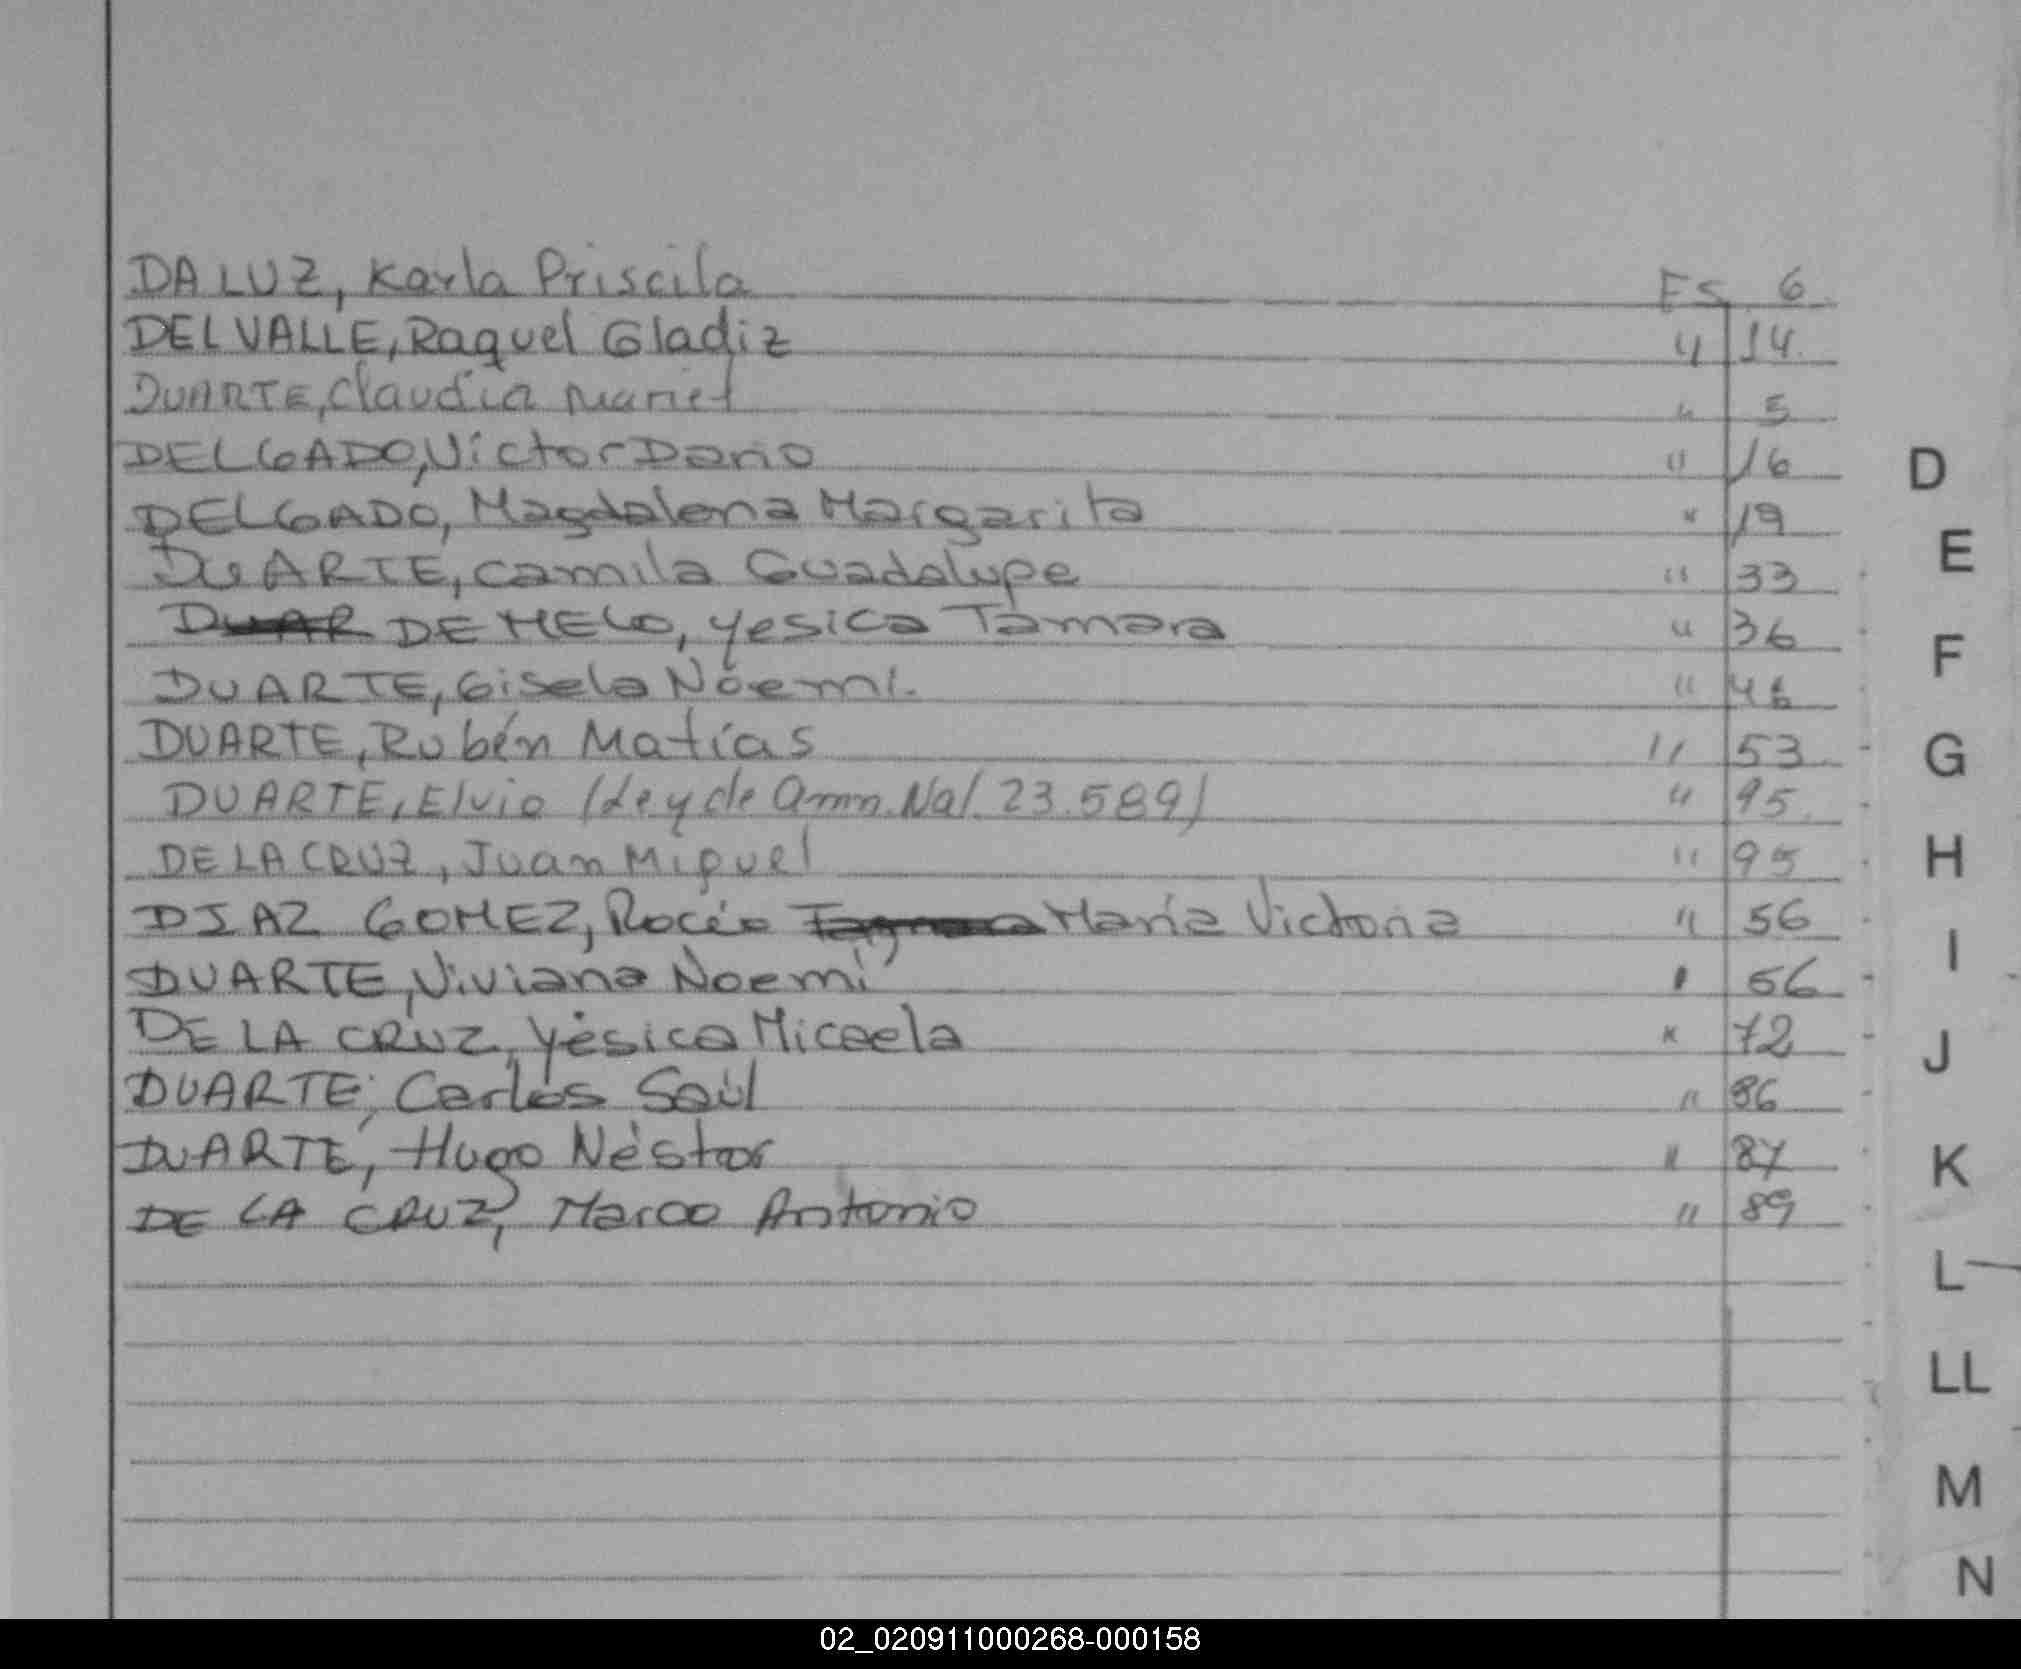 DA LUZ, Karla Priscila Es 6
DELVALLE, Raquel Gladiz " 14
DUARTE, Claudia Mariel " 5
DELGADO, Victor Dario " 16
DELGADO, Magdalena Margarita " 19
DUARTE, Camila Guadalupe " 33
DUAR DE MELO, Yesica Tamara " 36
DUARTE, Gisela Noemi. " 46
DUARTE, Rubén Matías " 53
DUARTE, Elvio (Ley de Amn. Nal. 23.589) " 95
DE LA CRUZ, Juan Miguel " 95
DIAZ GOMEZ, Rocío María Victoria " 56
DUARTE, Viviana Noemí " 56
DE LA CRUZ, Yésica Micaela " 72
DUARTE, Carlos Saúl " 86
DUARTE, Hugo Néstor " 87
DE LA CRUZ, Marco Antonio " 89
D
E
F
G
H
I
J
K
L
LL
M
N
02_020911000268-000158